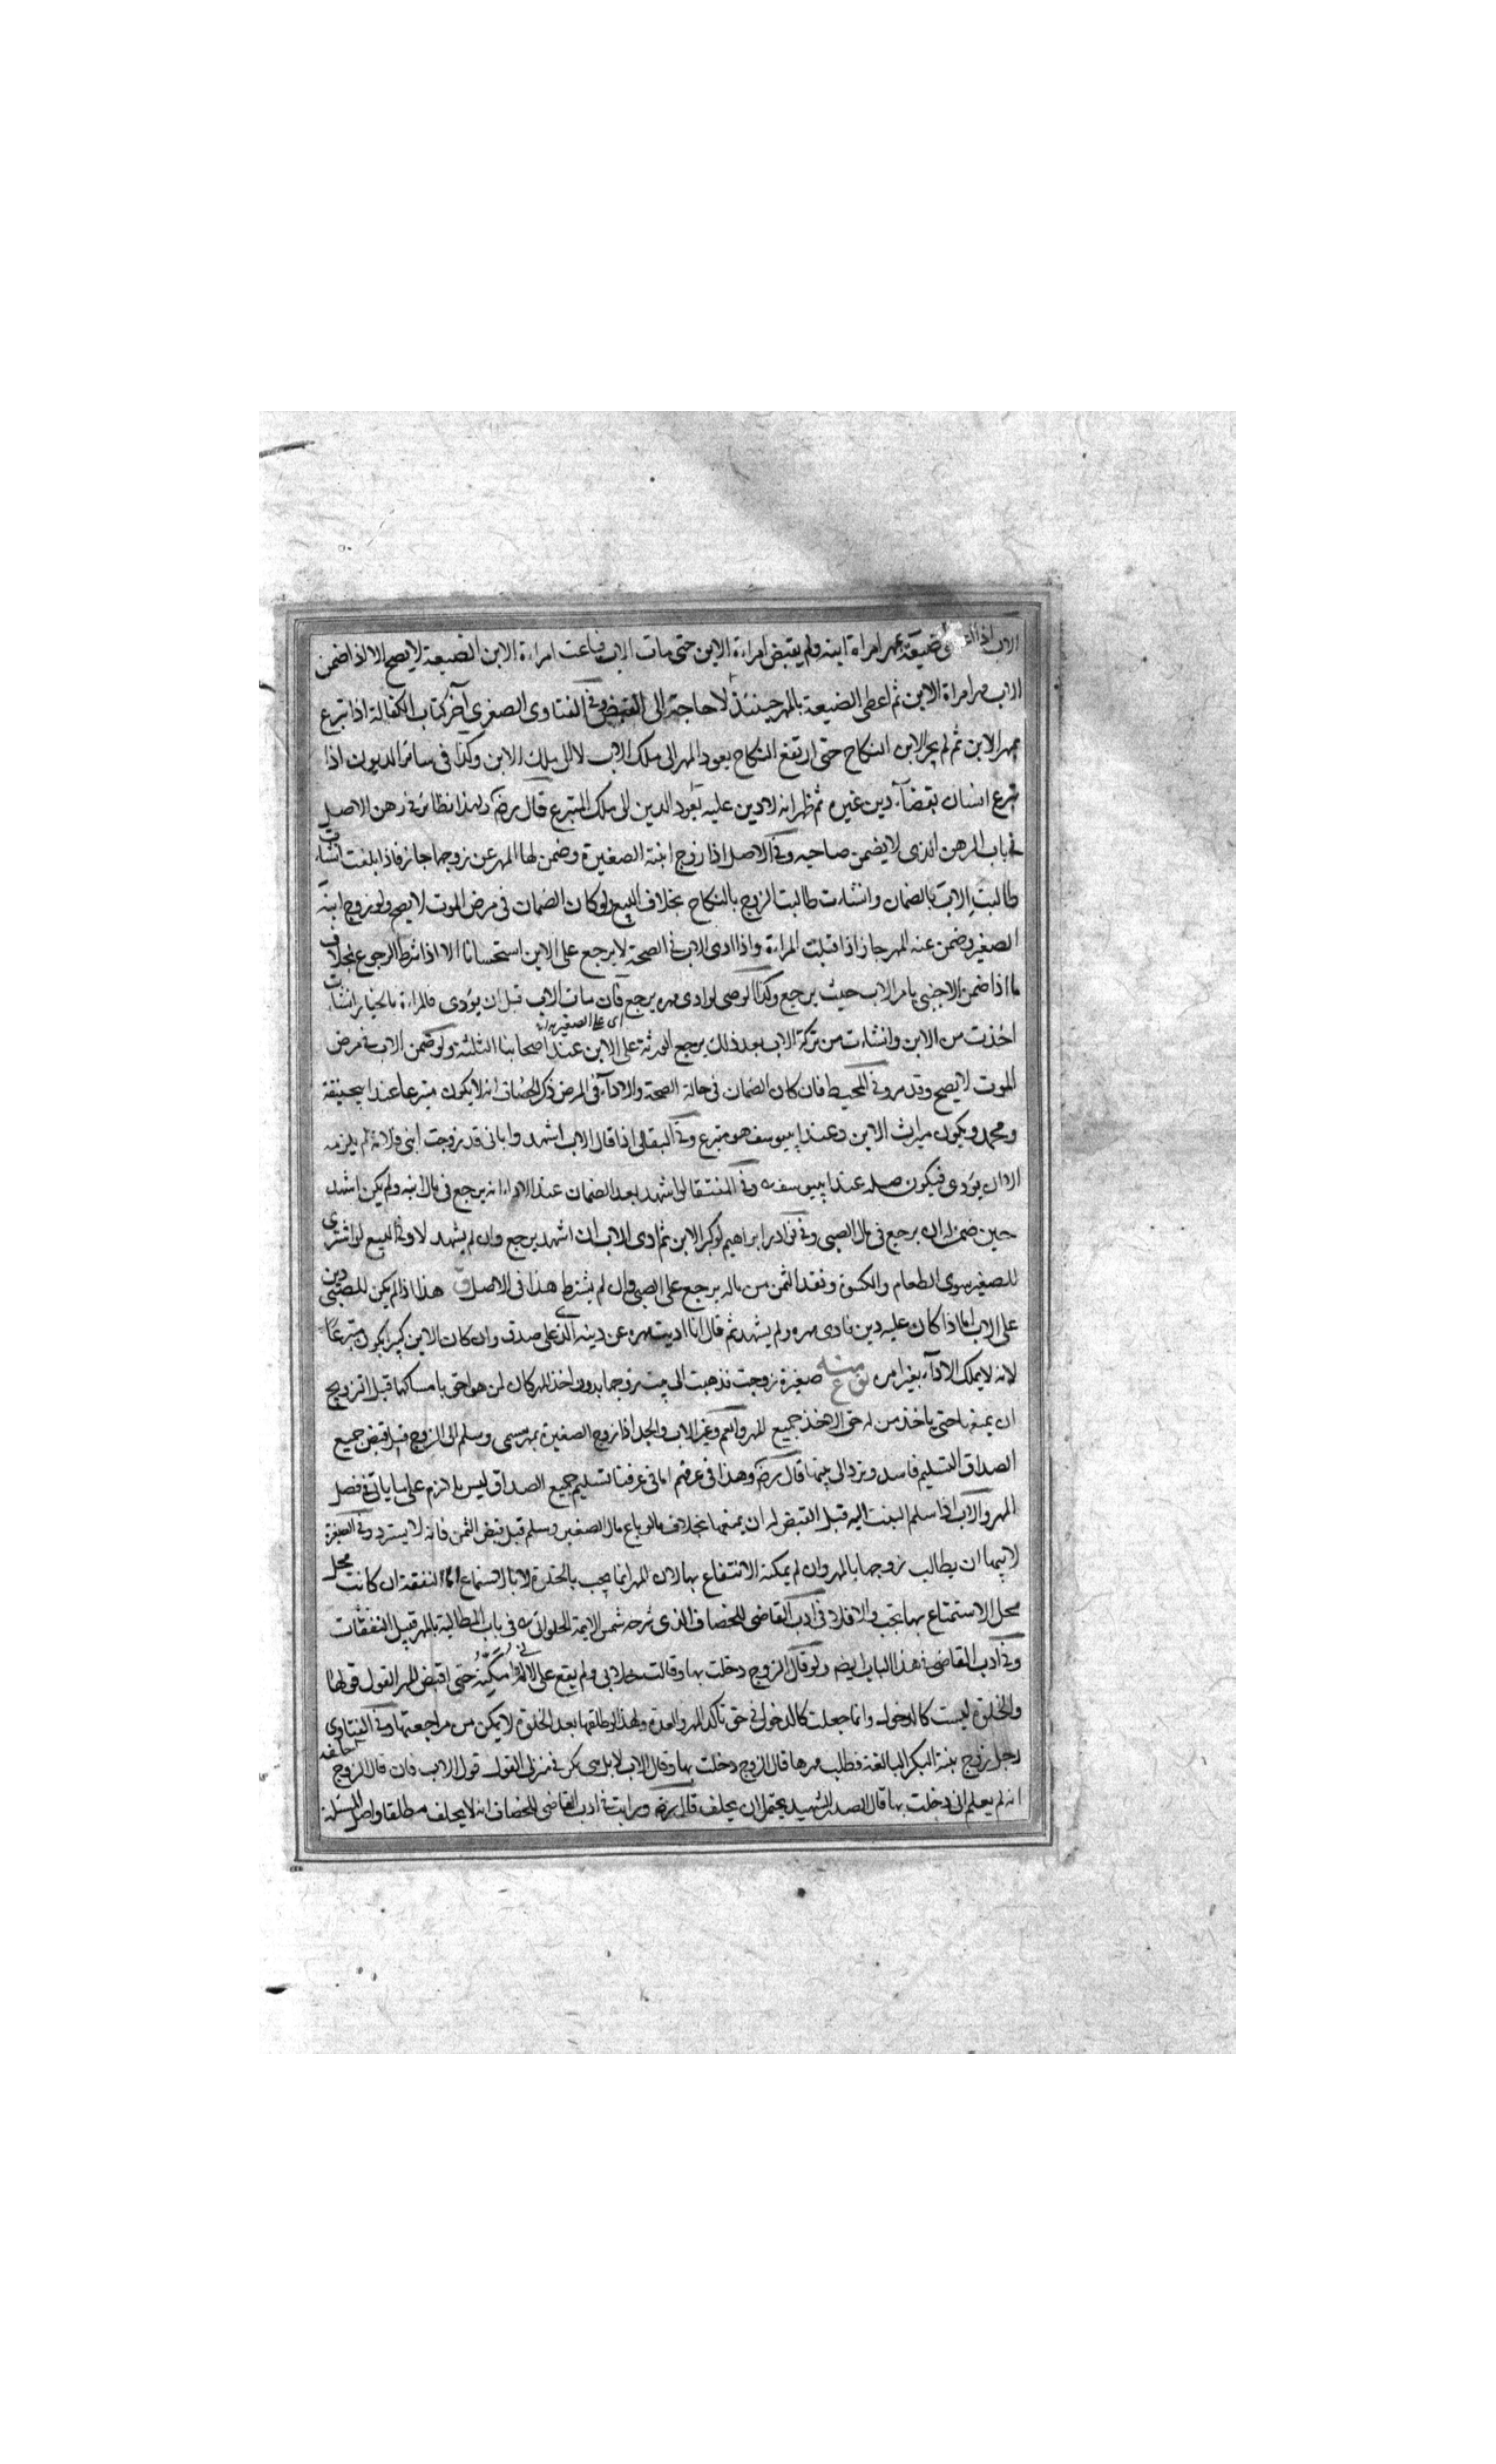 الاب اذا ضيعة بمهر امراة ابنه ولم يقبض امراءة الابن حتى مات الاب فباعت امراءة الابن الضيعة لا يصح الا اذا ضمن
الاب مهر امراة الابن ثم اعطى الضيعة بالمهر حينئذ لا حاجة الى القبض وفي الفتاوى الصغرى آخر كتاب الكفالة اذا تبرع
بمهر الابن ثم لم يجز الابن النكاح حتى ارتفع النكاح يعود المهر الى ملك الاب لا الى ملك الابن وكذا في سائر الديون اذا
تبرع انسان بقضاء دين غيره ثم ظهر انه لا دين عليه يعود الدين الى ملك المتبرع قال رضه ولهذا نظائر في رهن الاصل
في باب الرهن الذى لا يضمن صاحبه وفي الاصل اذا زوج ابنته الصغيرة وضمن لها المهر عن زوجها جاز فاذا بلغت ان شاءت
طالبت الاب بالضمان وان شاءت طالبت الزوج بالنكاح بخلاف البيع ولو كان الضمان في مرض الموت لا يصح ولو زوج ابنه
الصغير وضمن عنه المهر جاز اذا قبلت المراءة واذا ادى الاب في الصحة لا يرجع على الابن استحسانا الا اذا شرط الرجوع بخلاف
ما اذا ضمن الاجنبي بامر الاب حيث يرجع وكذا الوصى لو ادى مهره يرجع فان مات الاب قبل ان يؤدى فالمراءة بالخيار ان شاءت
اى على الصغير
اخذت من الابن وان شاءت من تركة الاب بعد ذلك يرجع الورثة على الابن عند اصحابنا الثلثة ولو ضمن الاب في مرض
الموت لا يصح وقد مر وفي المحيط فان كان الضمان في حالة الصحة والاداء في المرض ذكر الخصاف انه لا يكون متبرعا عند ابيحنيفة
ومحمد ويكون ميراث الابن وعند ابيوسف هو متبرع وفي البقالى اذا قال الاب اشهدوا باني قد زوجت ابني فلانة لم يلزمه
الا ان يؤدى فيكون صلة عند ابيوسف وفي المنتقى لو اشهد بعد الضمان عند الاداء انه يرجع في مال ابنه ولم يكن اشهد
حين ضمن له ان يرجع في مال الصبي وفي نوادر ابراهيم لو كبر الابن ثم ادى الاب ان اشهد يرجع وان لم يشهد لا وفي البيع لو اشترى
للصغير سوى الطعام والكسوة ونقد الثمن من ماله يرجع على الصبي وان لم يشترط هذا في الاصل هذا اذا لم يكن للصبي دين
على الاب اما اذا كان عليه دين فادى مهره ولم يشهد ثم قال انا اديت مهره عن دينه الذى على صدق وان كان الابن كبيرا يكون متبرعا
لانه لا يملك الاداء بغير امره صغيرة زوجت فذهبت الى بيت زوجها بدون اخذ المهر كان لمن هو احق بامساكها قبل التزويج
ان يمنعها حتى ياخذ من له حق الاخذ جميع المهر والعم وغير الاب والجد اذا زوج الصغيرة بمهر مسمى وسلم الى الزوج قبل قبض جميع
الصداق التسليم فاسد وترد الى بيتها قال رضه وهذا في عرفهم اما في عرفنا تسليم جميع الصداق ليس بلازم على ما ياتي في فصل
المهر والاب اذا سلم البنت اليه قبل القبض له ان يمنعها بخلاف ما لو باع مال الصغير وسلم قبل قبض الثمن فانه لا يسترد وفي الصغيرة
لابيها ان يطالب زوجها بالمهر وان لم يمكنه الانتفاع بها لان المهر انما يجب بالخلوة لا بالاستمتاع اما النفقة ان كانت محل
محل الاستمتاع بها تجب والا فلا وفي ادب القاضي للخصاف الذى شرحه شمس الايمة الحلواني في باب المطالبة بالمهر قبيل النفقات
وفي ادب القاضي في هذا الباب ايضه ولو قال الزوج دخلت بها وقالت خلا بي ولم يقع على لاني لم امكنه حتى اقبض المهر القول قولها
والخلوة ليست كالدخول وانما جعلت كالدخول في حق تاكد المهر والعدة ولهذا لو طلقها بعد الخلوة لا يمكن من مراجعتها وفي الفتاوى
رجل زوج بنته البكر البالغة فطلب مهرها قال الزوج دخلت بها وقال الاب لا بل هي بكر في منزلى القول قول الاب فان قال الزوج احلفه
انه لم يعلم انى دخلت بها قال الصدر الشهيد يحتمل ان يحلف قال رضه ورايت في ادب القاضي للخصاف انه لا يحلف مطلقا واصل المسئلة